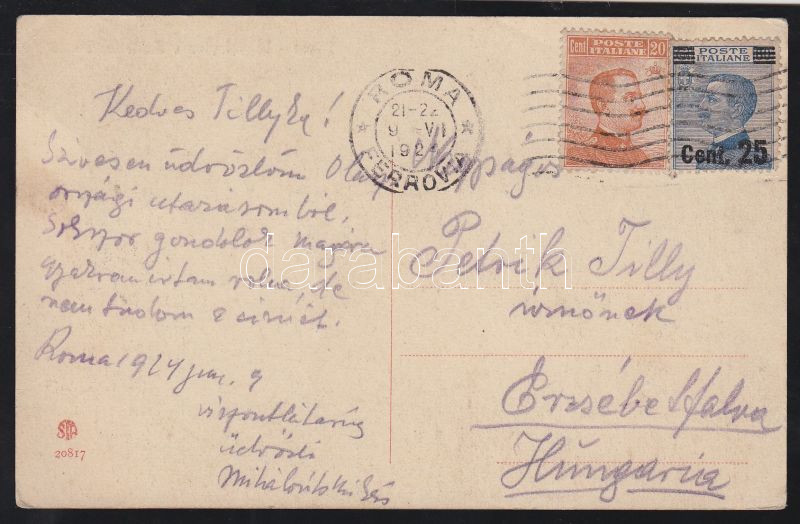 Kedves Tillyke!
Szivesen üdvözlöm Olasz
országi utazásomból.
Sokszor gondolok magára
gyakran irtam volna, de
nem tudom a címét.
Roma 1924 jun. 9
viszontlátásig
üdvözli
ROMA
21-22
9 VI
192
FERROVIA
Cent POSTE ITALIANE 20
POSTE ITALIANE
Cent. 25
Nagyságos
Petrik Tilly
úrnőnek
Erzsébetfalva
Hungaria
20817
darabanth